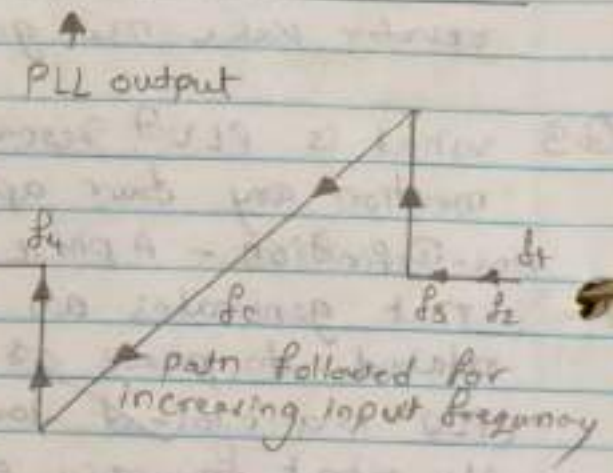 PLL output
f4
f1
fc
f3 f2
path followed for
increasing input frequnay